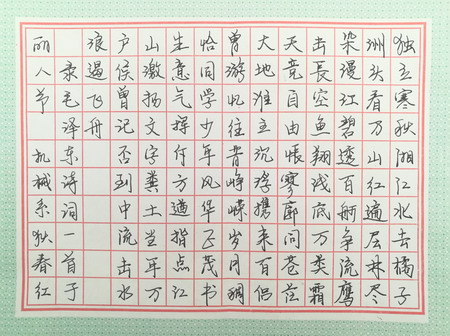 独立寒秋湘江北去橘子
洲头看万山红遍层林尽
染漫江碧透百舸争流鹰
击長空鱼翔浅底万类霜
天竞自由怅寥廓问苍茫
大地谁主沉浮携来百侣
曾游忆往昔峥嵘岁月稠
恰同学少年风华正茂书
生意气挥斥方遒指点江
山激扬文字粪土当年万
户侯曾记否到中流击水
浪遏飞舟
录毛泽东诗词一首于
丽人节 机械系狄春红